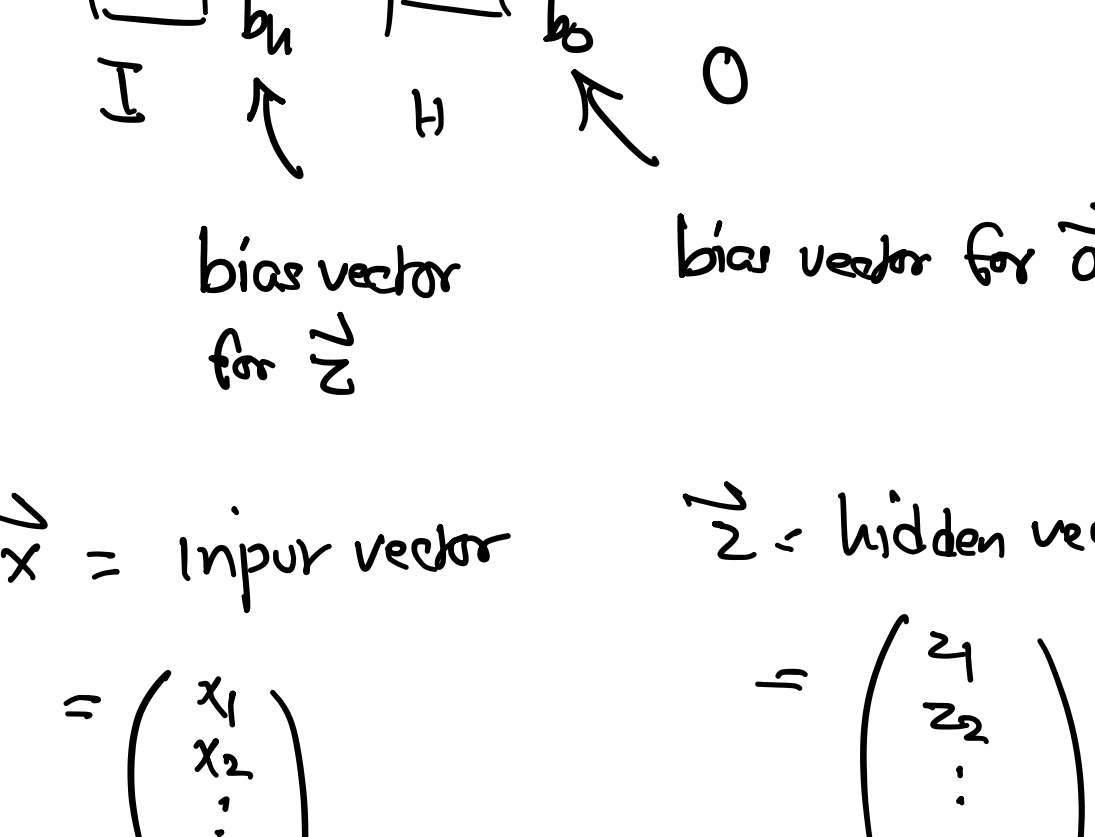 b_H b_O
I H O
bias vector for z⃗
bias vector for o⃗
x⃗ = input vector
z⃗ = hidden
= ( x_1
x_2
⋮
= ( z_1 )
z_2
⋮